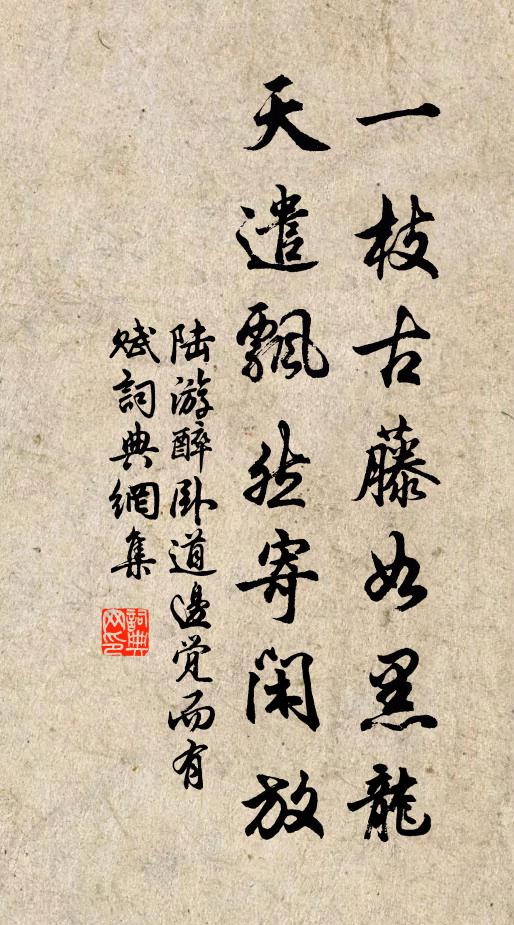 一枝古藤如黑龍
天遣飄然寄閑放
陸游醉臥道邊觉而有
赋詞典網集
詞典
网印